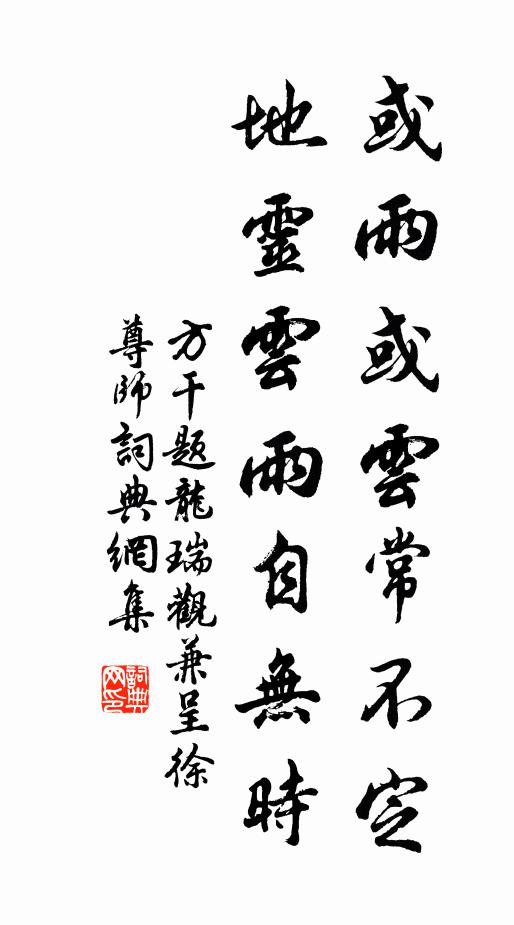 或雨或雲常不定
地靈雲雨自無時
方干題龍瑞觀兼呈徐
尊師詞典網集
詞典
网印